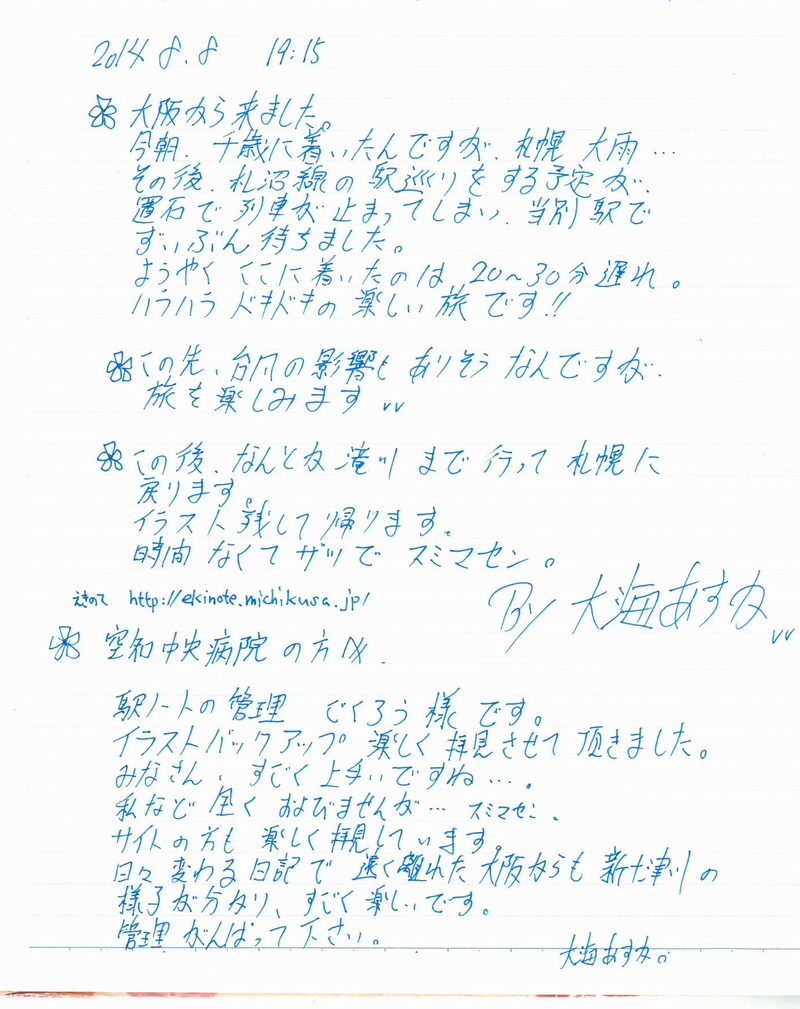 2014 8.8 19:15
大阪から来ました。
今朝、千歳に着いたんですが、札幌 大雨…
その後、札沼線の駅巡りをする予定が、
置石で列車が止まってしまい、当別駅で
ずいぶん待ちました。
ようやくここに着いたのは、20〜30分遅れ。
ハラハラドキドキの楽しい旅です!!
この先、台風の影響もありそうなんですが、
旅を楽しみます
この後、なんとか滝川まで行って札幌に
戻ります。
イラスト残して帰ります。
時間なくてザツでスミマセン。
えきのて http://ekinote.michikusa.jp/
By 大海あすか
空知中央病院の方へ
駅ノートの管理 ごくろう様です。
イラストバックアップ 楽しく拝見させて頂きました。
みなさん、すごく上手いですね…。
私など全くおよびませんが… スミマセン。
サイトの方も楽しく拝見しています。
日々変わる日記で遠く離れた大阪からも新十津川の
様子が分かり、すごく楽しいです。
管理がんばって下さい。
大海あすか